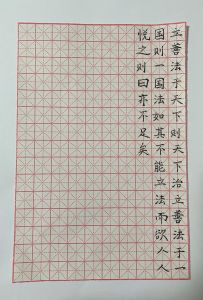 立善法于天下则天下治立善法于一
国则一国法如其不能立法而欲人人
悦之则曰亦不足矣